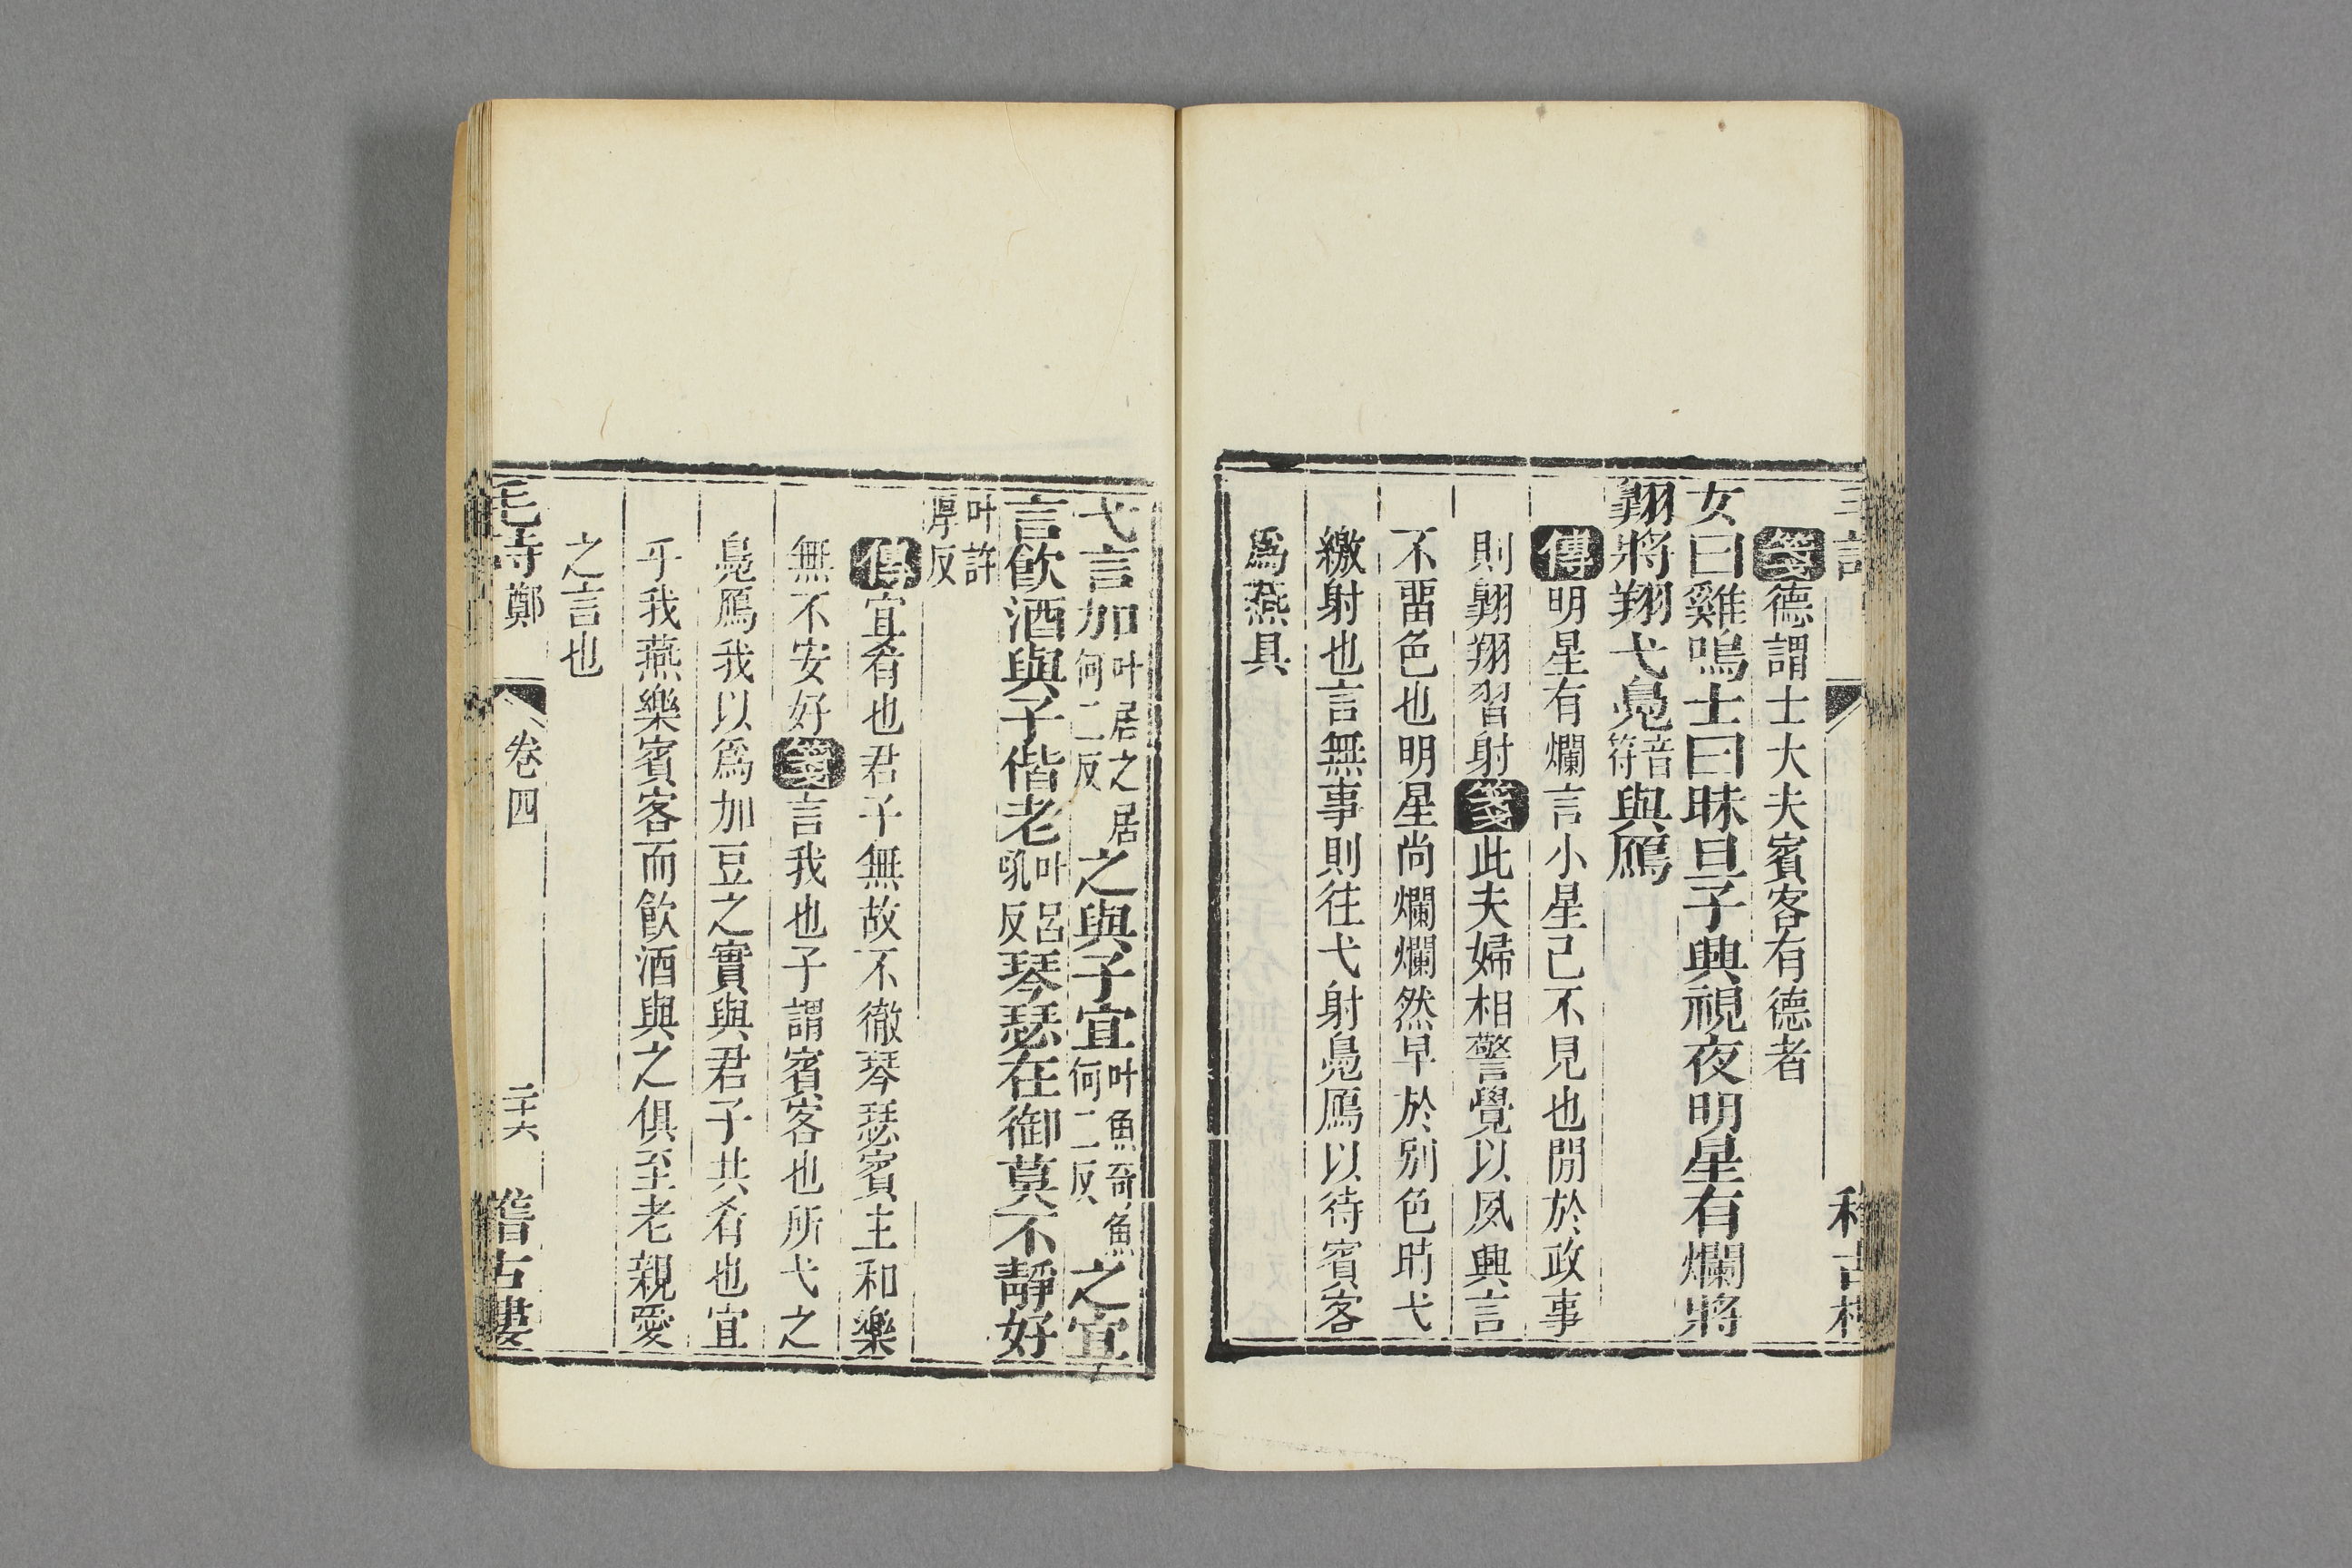 箋德謂士大夫賓客有德者
女曰雞鳴士曰昧旦子興視夜明星有爛將
翱將翔弋鳧音符與鴈
傳明星有爛言小星已不見也閒於政事
則翱翔習射箋此夫婦相警覺以夙興言
不畱色也明星尚爛爛然早於別色時弋
繳射也言無事則往弋射鳧鴈以待賓客
爲燕具
弋言加叶居之居何二反之與子宜叶魚奇魚何二反之宜
言飮酒與子偕老叶呂吼反琴瑟在御莫不靜好
叶許厚反
傳宜肴也君子無故不徹琴瑟賓主和樂
無不安好箋言我也子謂賓客也所弋之
鳧鴈我以爲加豆之實與君子共肴也宜
乎我燕樂賓客而飮酒與之俱至老親愛
之言也
毛詩鄭 卷四 二十六 稽古樓